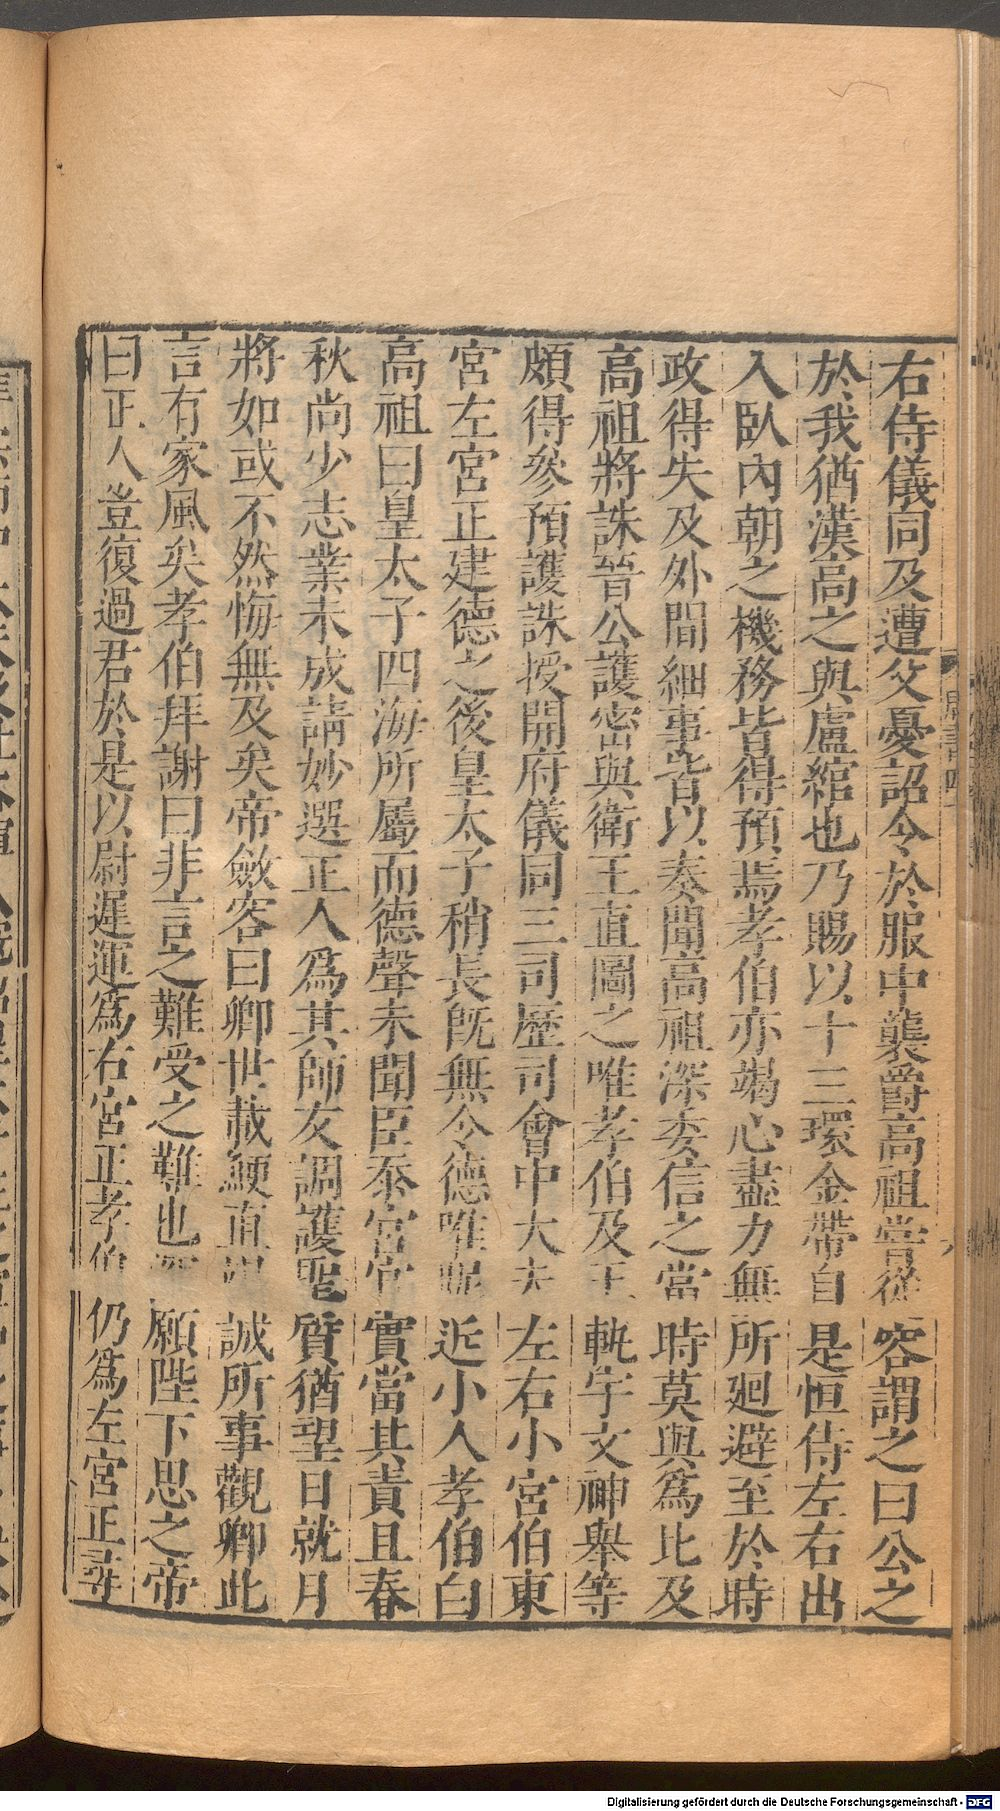 右侍儀同及遭父憂詔令於服中襲爵高祖嘗從容謂之曰公之
於我猶漢高之與盧綰也乃賜以十三環金帶自是恒侍左右出
入臥內朝之機務皆得預焉孝伯亦竭心盡力無所廻避至於時
政得失及外間細事皆以奏聞高祖深委信之當時莫與為比及
高祖將誅晉公護密與衛王直圖之唯孝伯及王軌宇文神舉等
頗得叅預護誅授開府儀同三司歷司會中大夫左右小宮伯東
宮左宮正建德之後皇太子稍長既無令德唯昵近小人孝伯白
高祖曰皇太子四海所屬而德聲未聞臣忝宮官實當其責且春
秋尚少志業未成請妙選正人為其師友調護聖質猶望日就月
將如或不然悔無及矣帝斂容曰卿世載鯁直竭誠所事觀卿此
言有家風矣孝伯拜謝曰非言之難受之難也深願陛下思之帝
曰正人豈復過君於是以尉遲運為右宮正孝伯仍為左宮正尋
Digitalisierung gefördert durch die Deutsche Forschungsgemeinschaft - DFG